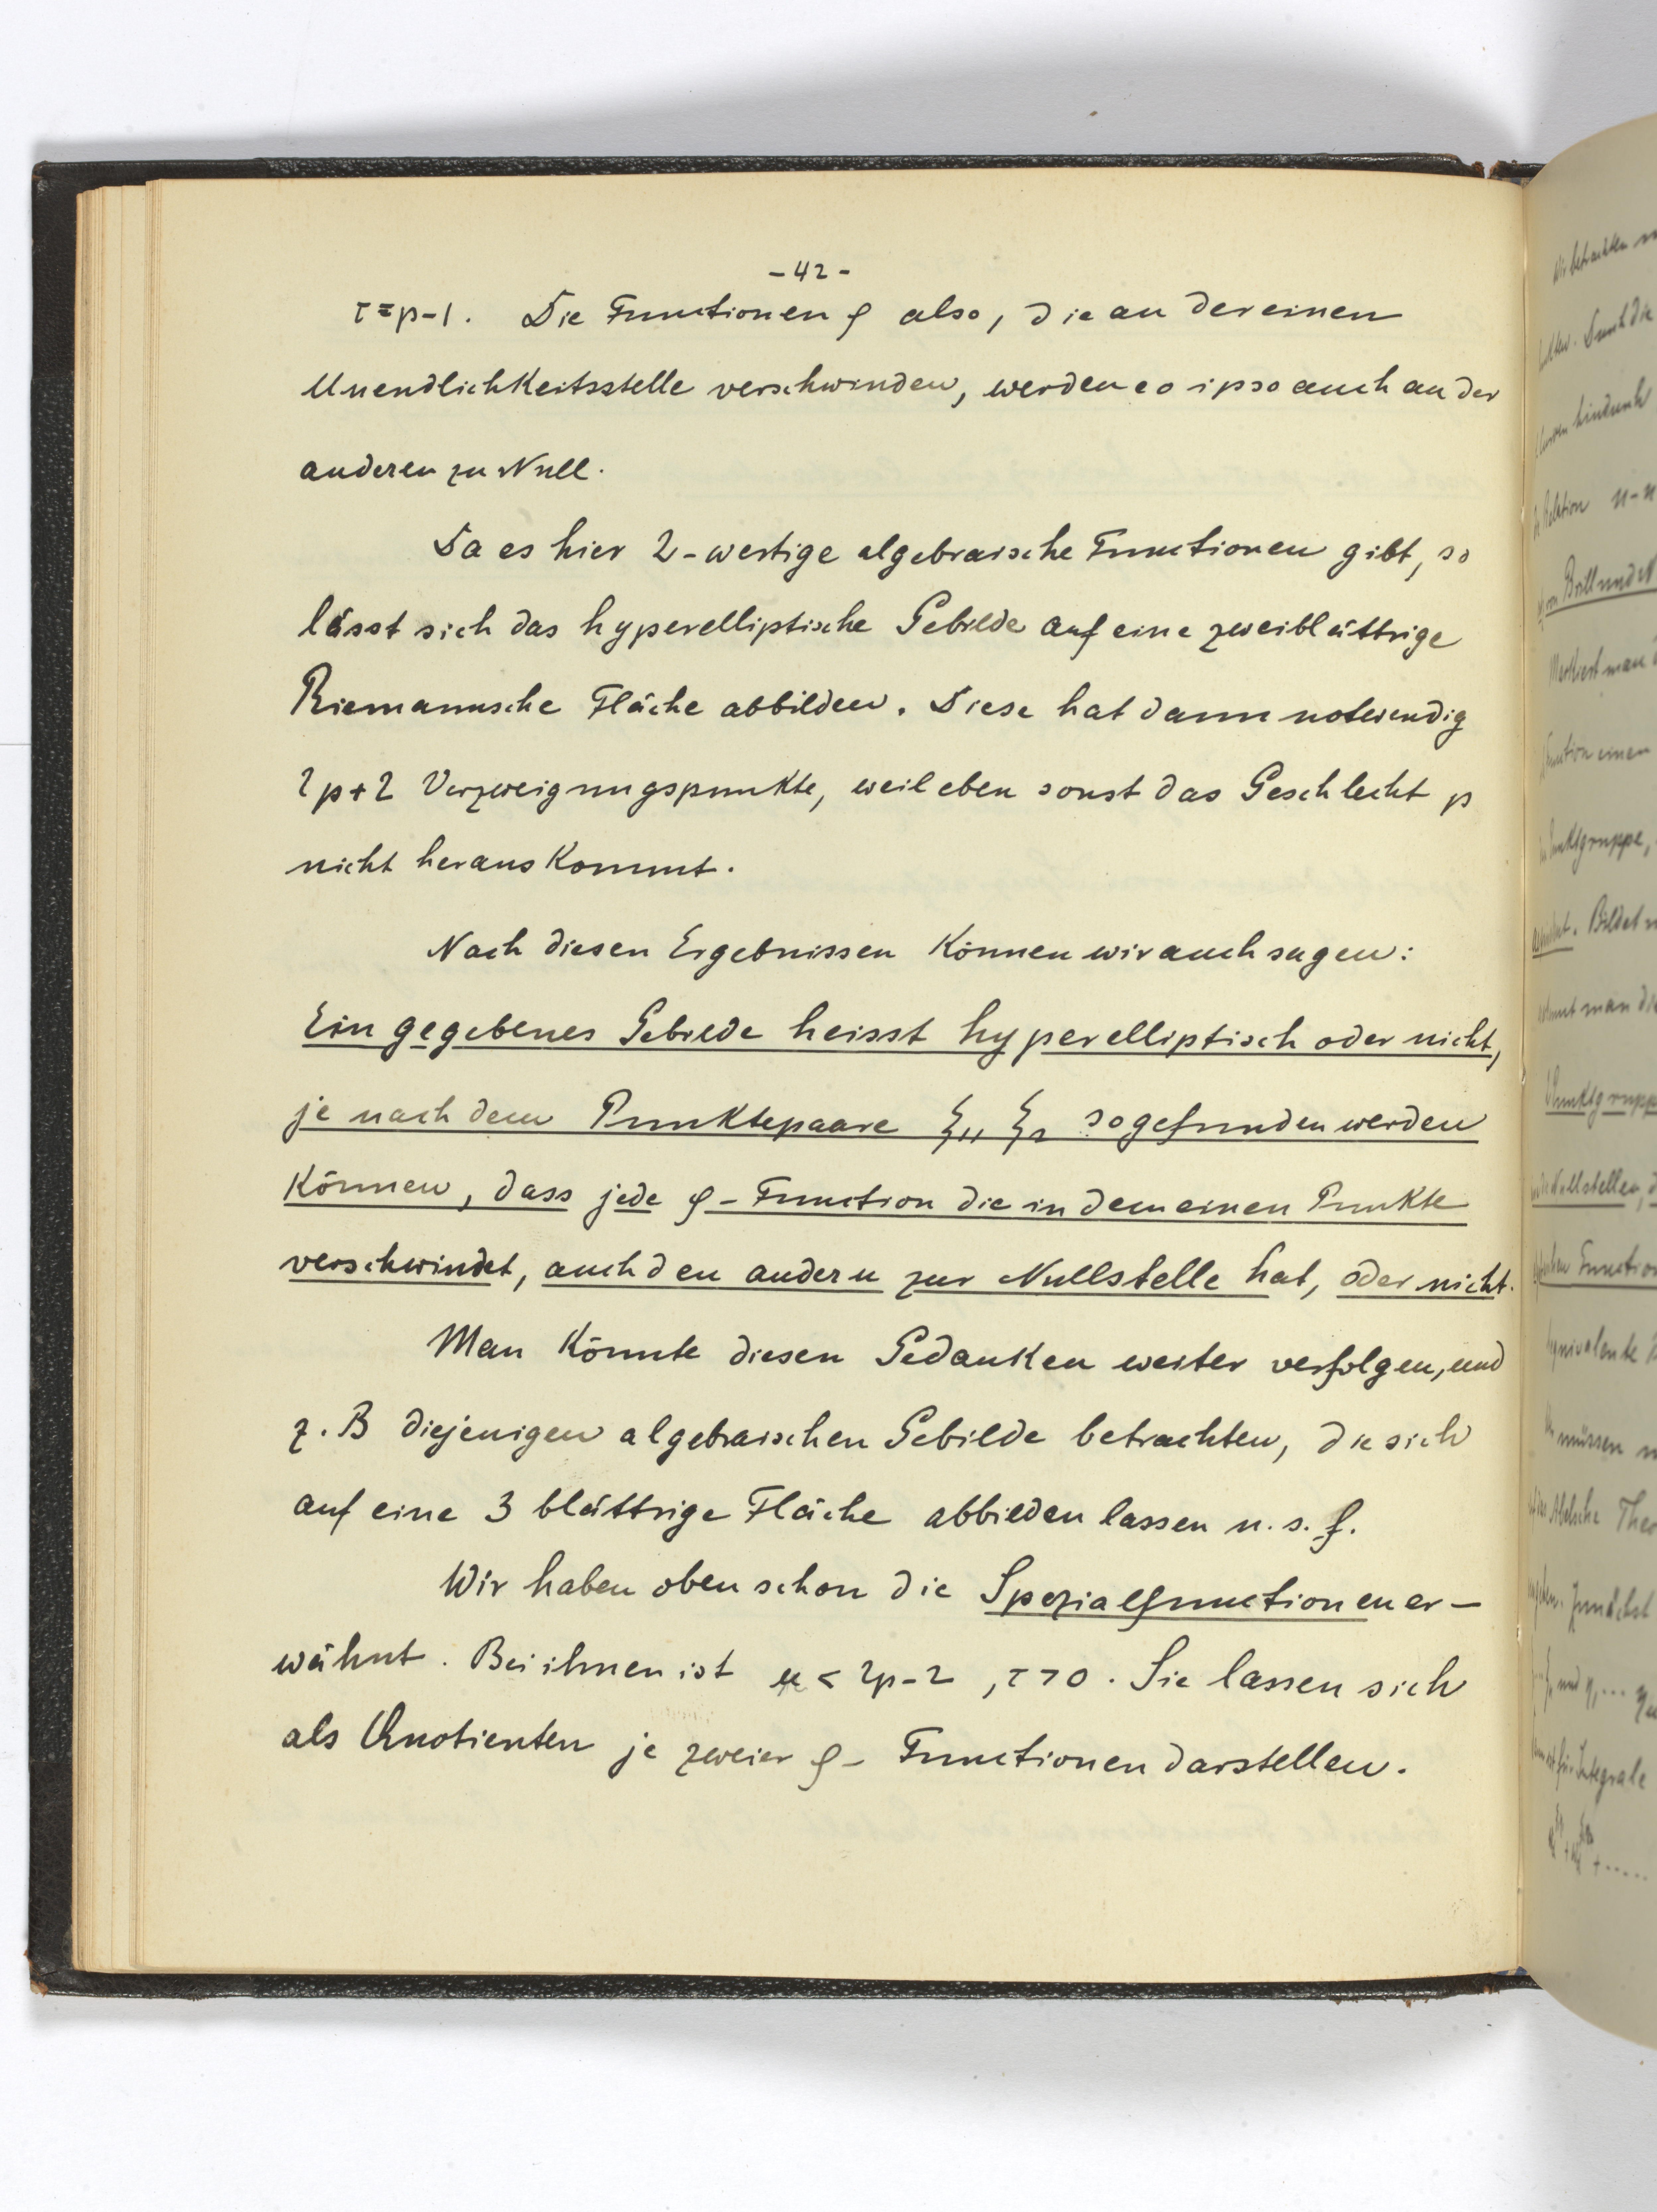 - 42 -
τ = p-1. Die Functionen φ also, die an der einen
Unendlichkeitsstelle verschwinden, werden eo ipso auch an der
anderen zu Null.
Da es hier 2-wertige algebraische Functionen gibt, so
lässt sich das hyperelliptische Gebilde auf eine zweiblättrige
Riemannsche Fläche abbilden. Diese hat dann notwendig
2p+2 Verzweigungspunkte, weil eben sonst das Geschlecht p
nicht heraus kommt.
Nach diesen Ergebnissen können wir auch sagen:
Ein gegebenes Gebilde heisst hyperelliptisch oder nicht,
je nach dem Punktepaare ξ₁, ξ₂ so gefunden werden
können, dass jede φ-Function die in dem einen Punkte
verschwindet, auch den andern zur Nullstelle hat, oder nicht.
Man könnte diesen Gedanken weiter verfolgen, und
z. B diejenigen algebraischen Gebilde betrachten, die sich
auf eine 3 blättrige Fläche abbilden lassen u. s. f.
Wir haben oben schon die Spezialfunctionen er-
wähnt. Bei ihnen ist μ < 2p-2, τ > 0. Sie lassen sich
als Quotienten je zweier φ- Functionen darstellen.